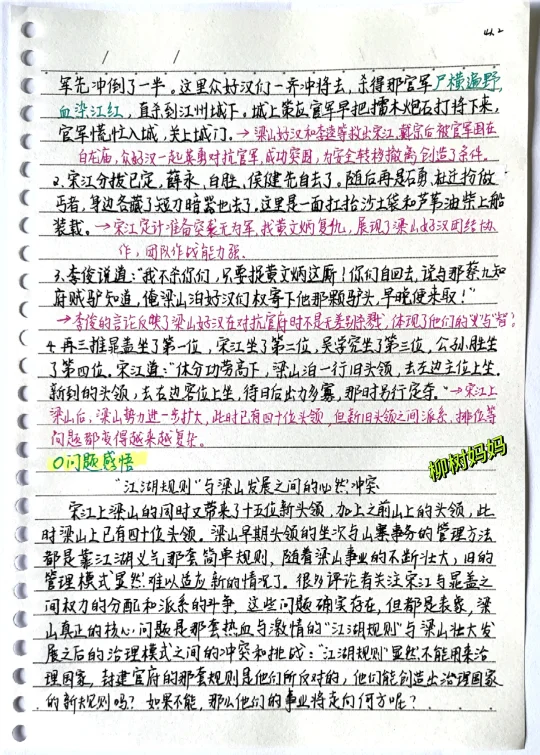 41.2
军先冲倒了一半。这里众好汉们一齐冲将去，杀得那官军尸横遍野，
血染江红，直杀到江州城下。城上策应官军早把擂木炮石打将下来，
官军慌忙入城，关上城门。→梁山好汉和李逵等救出宋江、戴宗后被官军围在
白龙庙，众好汉一起英勇对抗官军，成功突围，为安全转移撤离创造了条件。
2.宋江分拨已定，薛永、白胜、侯健先自去了。随后再是石勇、杜迁扮做
丐者，身边各藏了短刀暗器也去了。这里是一面扛抬沙土袋和芦苇油柴上船
装载。→宋江定计准备突袭无为军，找黄文炳复仇，展现了梁山好汉团结协
作，团队作战能力强。
3.李俊说道："我不杀你们，只要捉黄文炳这厮！你们自回去，说与那蔡九知
府贼驴知道，俺梁山泊好汉们权寄下他那颗驴头，早晚便来取！"
→李俊的言论反映了梁山好汉在对抗官府时不是无差别杀戮，体现了他们的"义"与"智"？
4.再三推晁盖坐了第一位，宋江坐了第二位，吴学究坐了第三位，公孙胜坐
了第四位。宋江道："休分功劳高下，梁山泊一行旧头领，去左边主位上坐，
新到的头领，去右边客位上坐，待日后出力多寡，那时另行定夺。"→宋江上
梁山后，梁山势力进一步扩大，此时已有四十位头领，但新旧头领之间派系、排位等
问题都变得越来越复杂。
柳树妈妈
○问题感悟
"江湖规则"与梁山发展之间的必然冲突
宋江上梁山的同时又带来了十五位新头领，加上之前山上的头领，此
时梁山上已有四十位头领。梁山早期头领的坐次与山寨事务的管理方法
都是靠江湖义气那套简单规则，随着梁山事业的不断壮大，旧的
管理模式显然难以适应新的情况了。很多评论者关注宋江与晁盖之
间权力的分配和派系的斗争，这些问题确实存在，但都是表象，梁
山真正的核心问题是那套热血与激情的"江湖规则"与梁山壮大发
展之后的治理模式之间的冲突和挑战："江湖规则"显然不能用来治
理国家，封建官府的那套规则是他们所反对的，他们能创造出治理国家
的新规则吗？如果不能，那么他们的事业将走向何方呢？